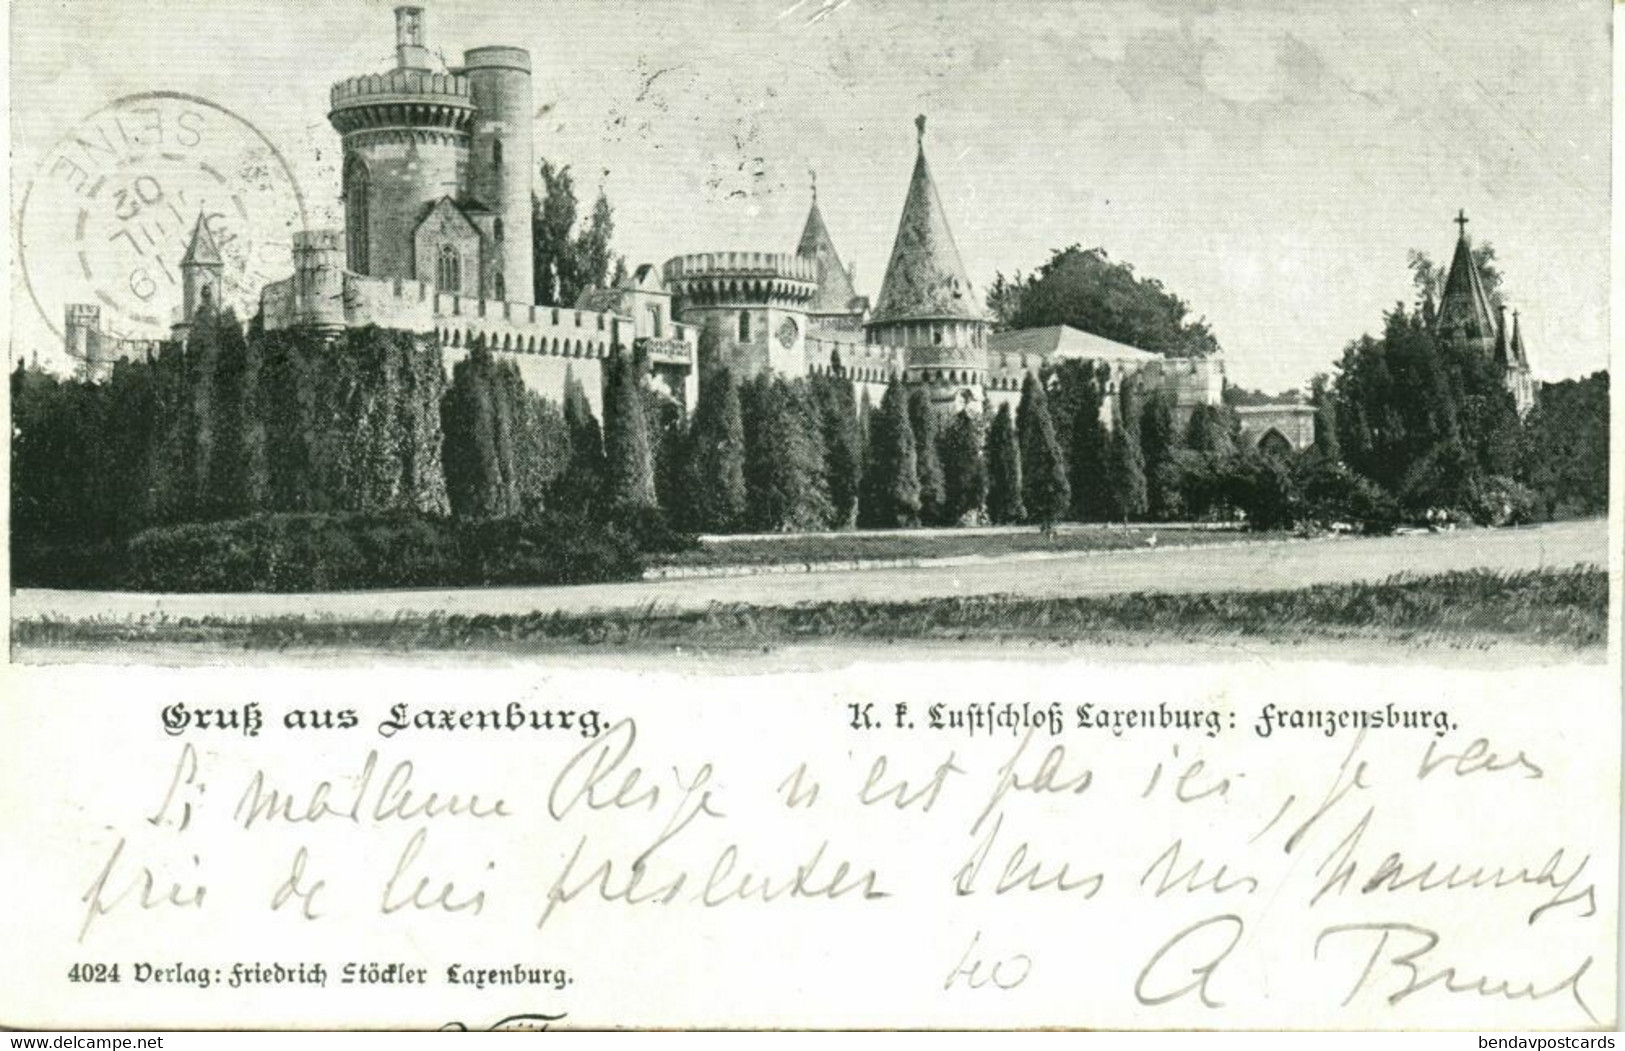 SEINE
19
JUIL
02
Gruß aus Laxenburg.
K. k. Lustschloß Laxenburg: Franzensburg.
Si madame Reige n'est pas ici, je vous
prie de lui presenter tous mes hommages
A
4024 Verlag: Friedrich Stöckler Laxenburg.
my eBarnet
bendavpostcards